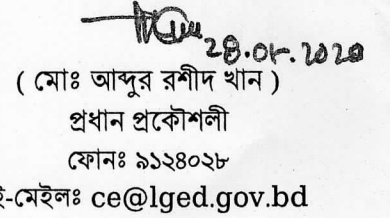 ২৪.০৮.২০২০
( মোঃ আব্দুর রশীদ খান )
প্রধান প্রকৌশলী
ফোনঃ ৯১২৪০২৮
ই-মেইলঃ ce@lged.gov.bd